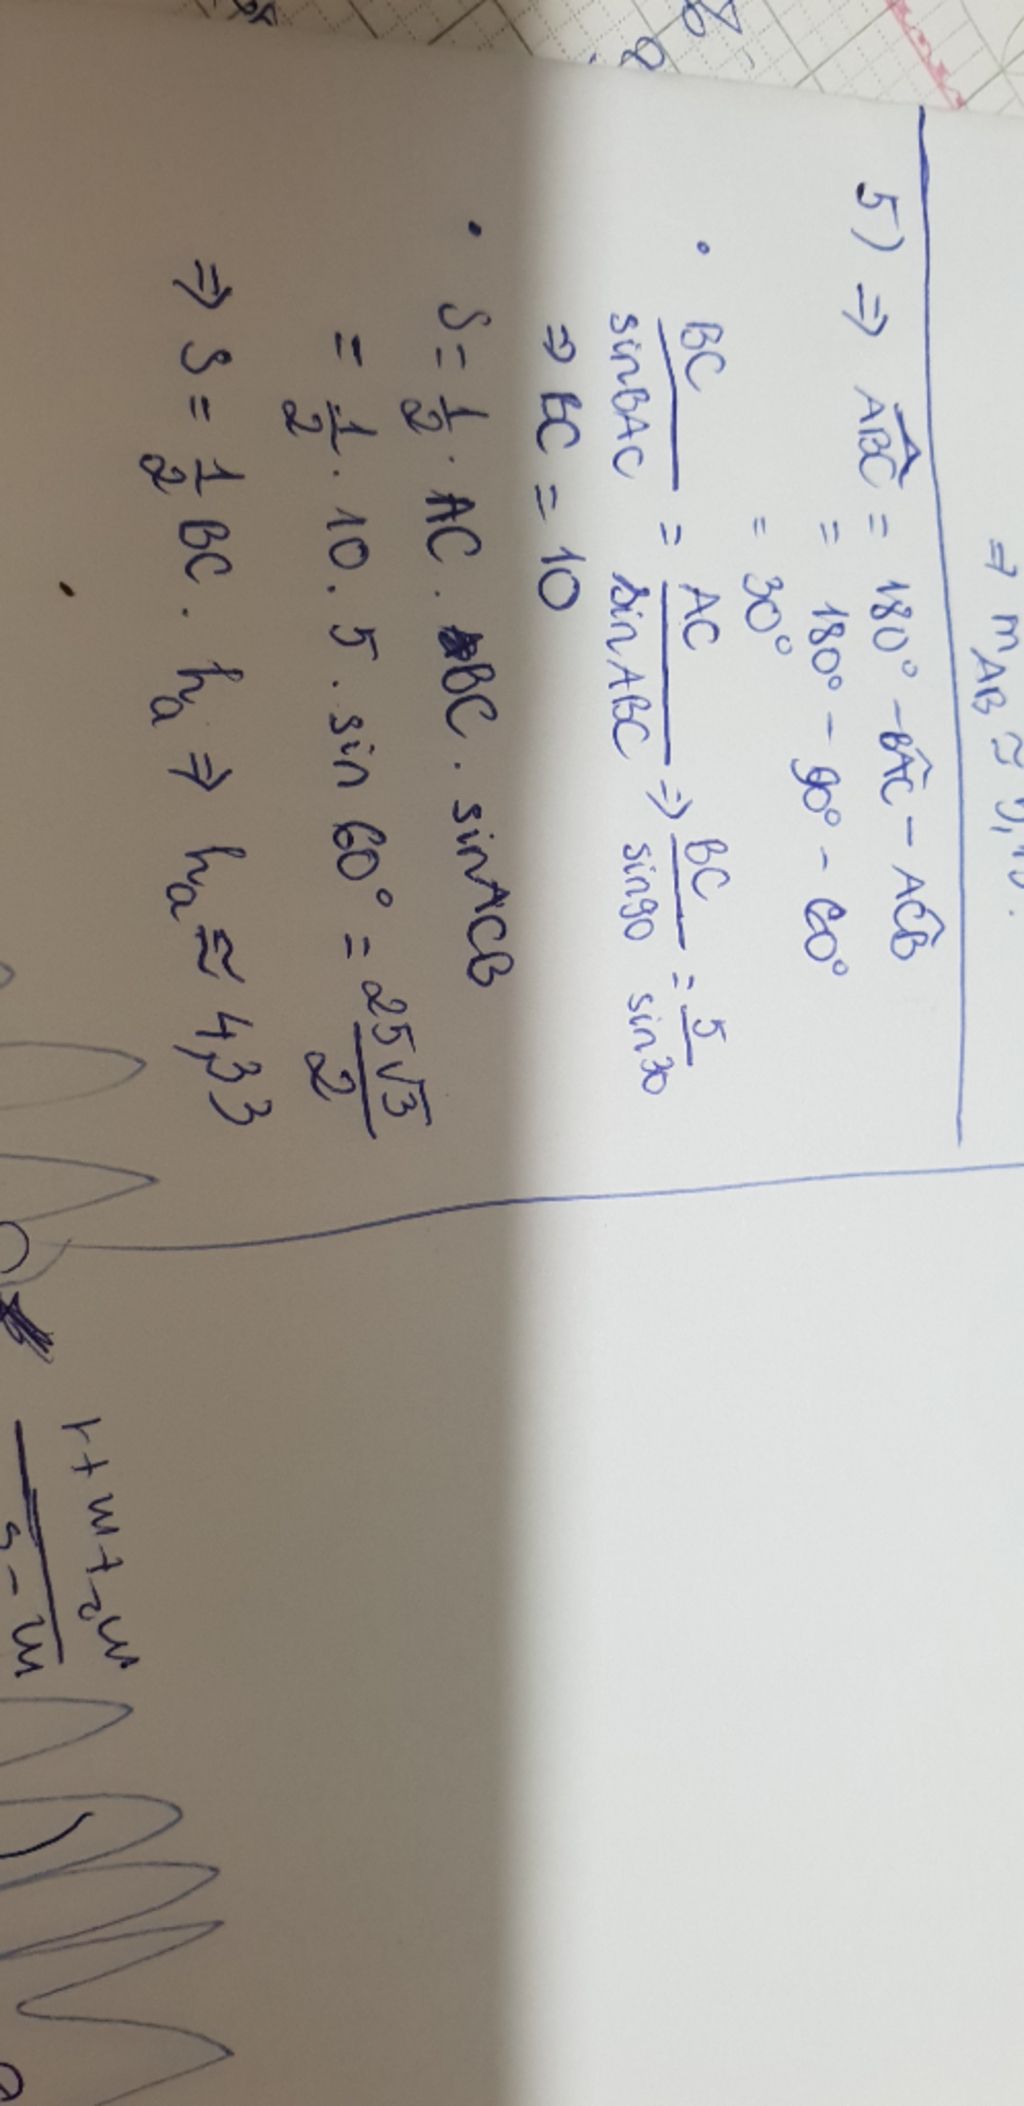 ⇒ m_AB ≈
5) ⇒ ABC^ = 180° - BAC^ - ACB^
= 180° - 90° - 60°
= 30°
• BC/sinBAC = AC/sinABC ⇒ BC/sin90 = 5/sin30
⇒ BC = 10
• S = 1/2 . AC . BC . sinACB
= 1/2 . 10 . 5 . sin 60° = 25√3/2
⇒ S = 1/2 BC . h_a ⇒ h_a ≈ 4,33
m²+m+1